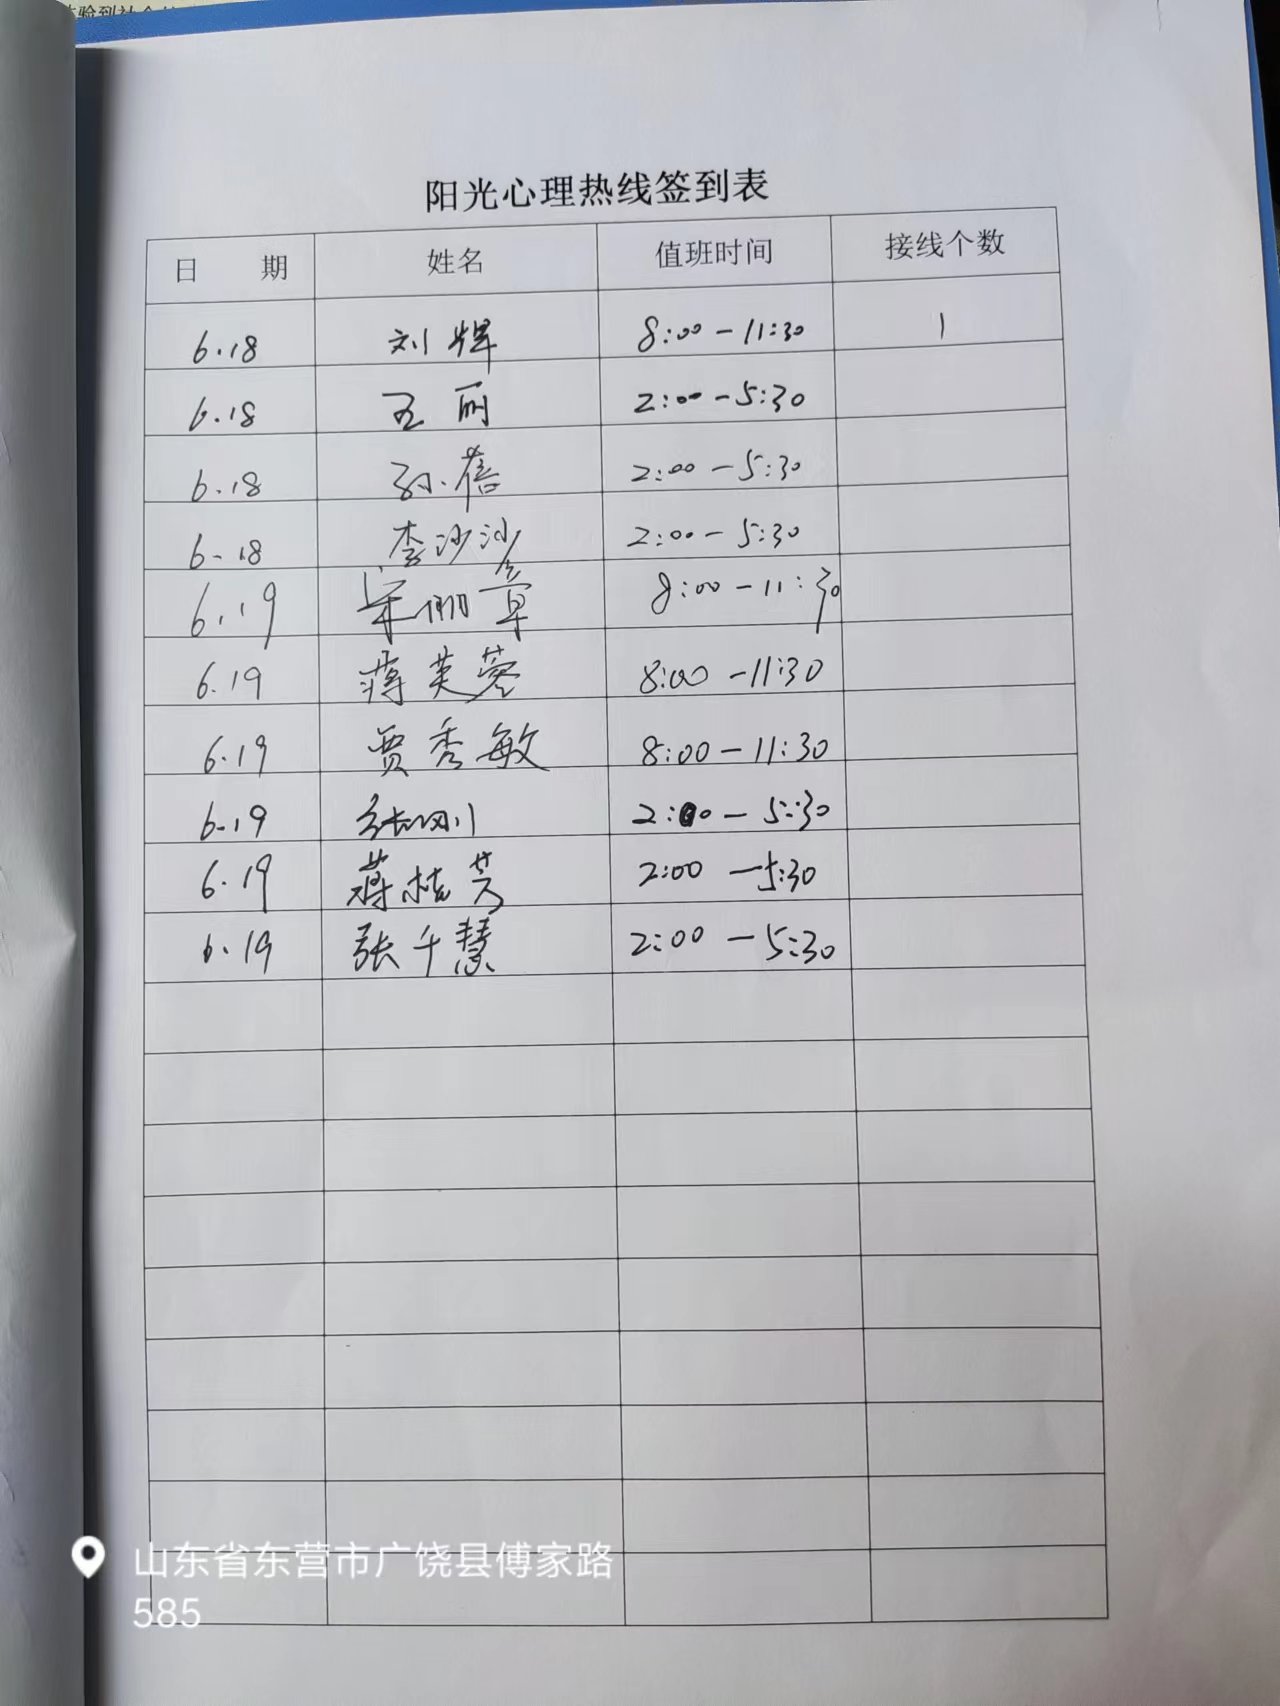 阳光心理热线签到表
日 期 姓名 值班时间 接线个数
6.18 刘辉 8:00-11:30 1
6.18 王丽 2:00-5:30
6.18 孙蓓 2:00-5:30
6-18 李沙沙 2:00-5:30
6.19 8:00-11:30
6.19 蒋芙蓉 8:00-11:30
6.19 贾秀敏 8:00-11:30
6-19 张刚 2:00-5:30
6.19 蒋桂芳 2:00-5:30
6.19 张千慧 2:00-5:30
山东省东营市广饶县傅家路
585